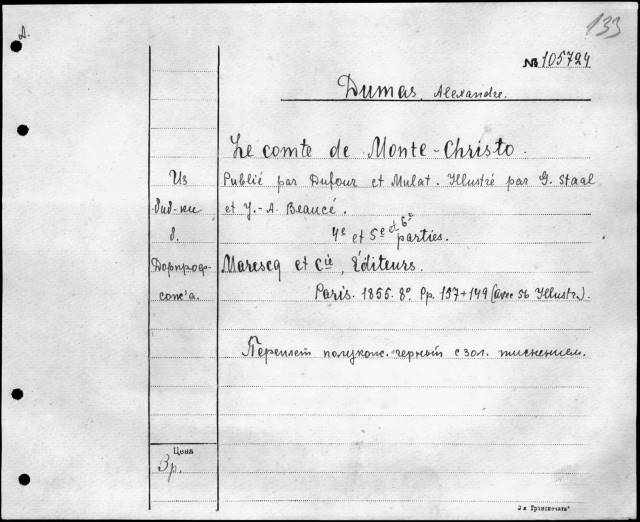 Д.
133
№ 105724
Dumas, Alexandre.
Le comte de Monte-Christo.
Из
Publié par Dufour et Mulat. Illustré par G. Staal
биб-ки
et J.-A. Beaucé.
б.
4e et 5e et 6e parties.
Дорпроф-
сож'а.
Marescq et Cie, Éditeurs.
Paris. 1855. 8º. Pp. 137+149 (avec 56 Illustr.).
Переплет полукож. черный с зол. тиснением.
Цена
3 р.